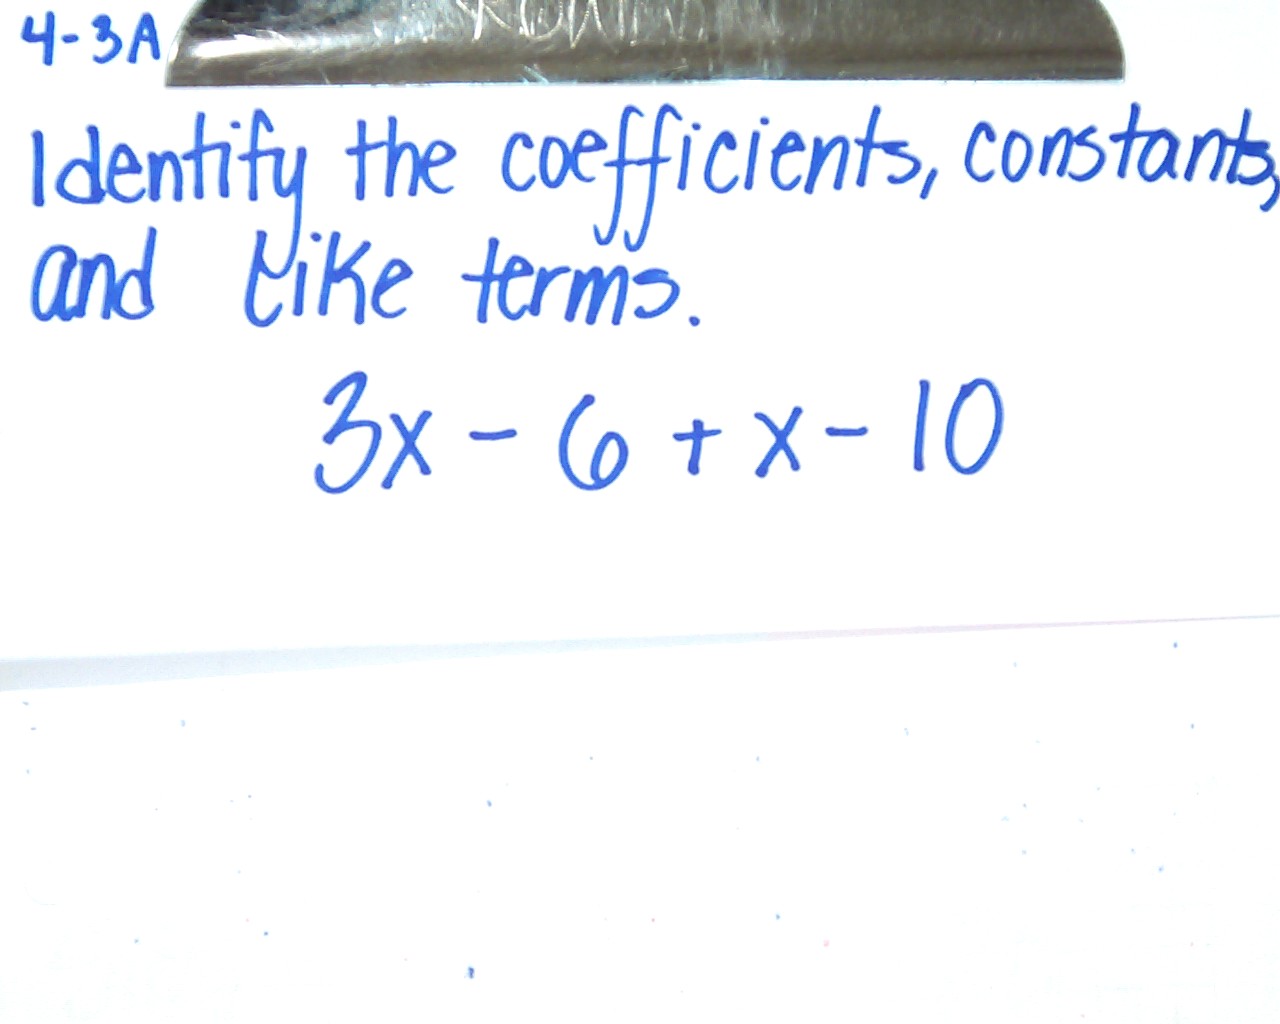 4-3A
Identify the coefficients, constants,
and like terms.
3x - 6 + x - 10